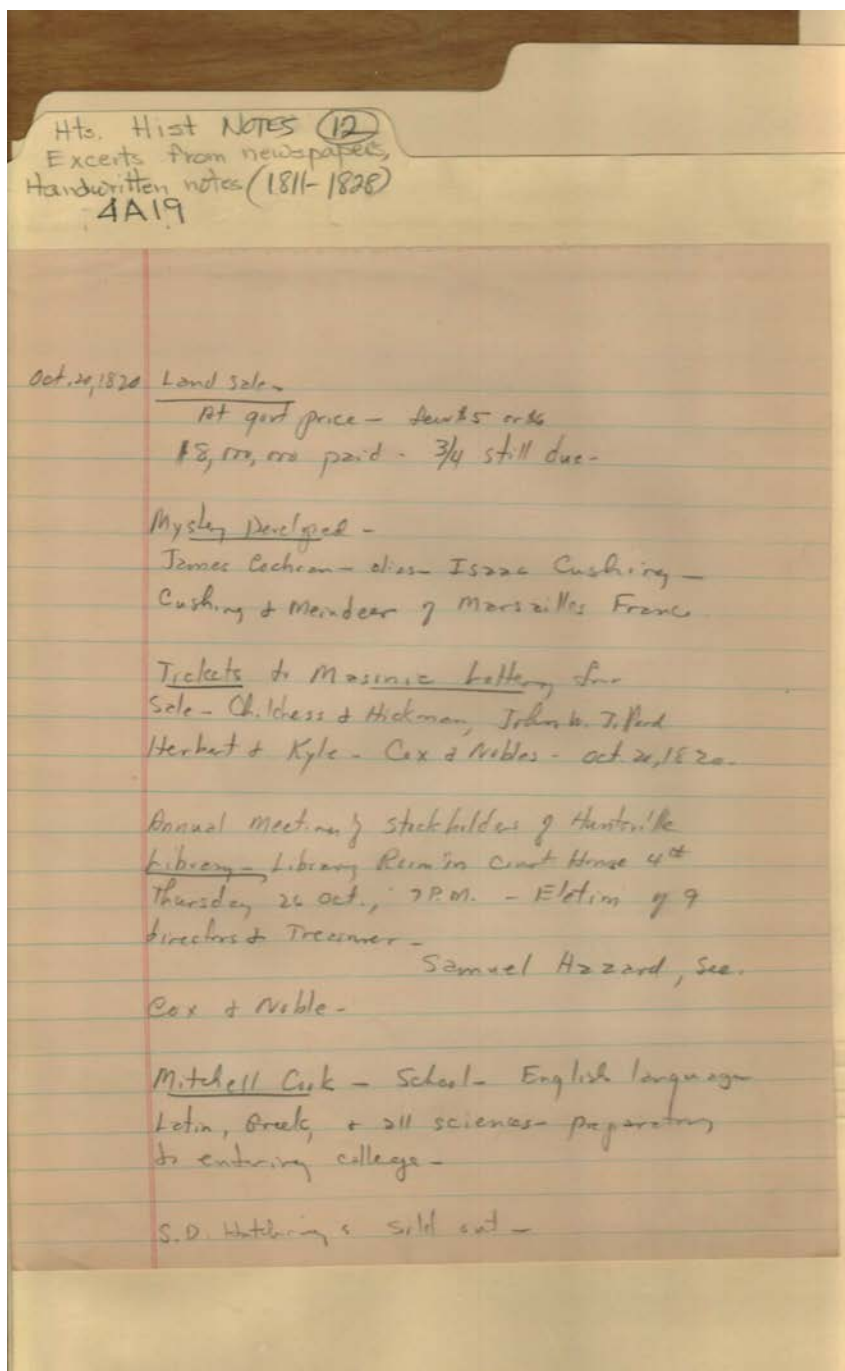 Hts. Hist NOTES 12
Excerts from newspapers,
Handwritten notes (1811-1828)
4A19
Oct. 20, 1820 Land Sale -
At govt price - few $5 or $6
$8,000,000 paid - 3/4 still due -
Mystery Developed -
James Cochran - alias - Isaac Cushing -
Cushing & Meindeer of Marsailles France
Tickets to Masonic Lottery for
Sale - Childress & Hickman, John W.
Herbert & Kyle - Cox & Nobles - Oct. 20, 1820.
Annual Meeting of Stockholders of Huntsville
Library - Library Room in Court House 4th
Thursday 26 Oct., 7 P.M. - Eletion of 9
directors & Treasurer -
Samuel Hazzard, Sec.
Cox & Noble -
Mitchell Cook - School - English language
Latin, Greek, & all sciences - preparatory
to entering college -
S.D. Hutchings sold out -